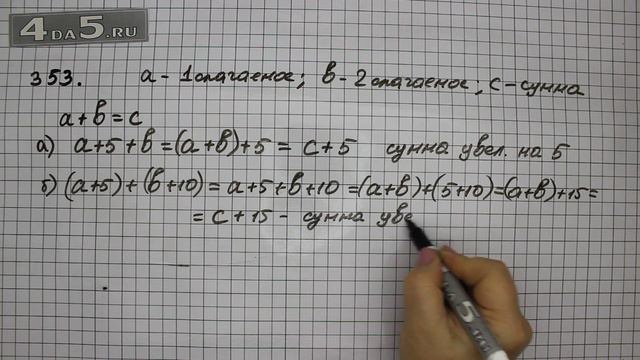 4DA5.RU
353. a - 1 слагаемое; в - 2 слагаемое; с - сумма
a + в = с
а) a + 5 + в = (a + в) + 5 = с + 5 сумма увел. на 5
б) (a + 5) + (в + 10) = a + 5 + в + 10 = (a + в) + (5 + 10) = (a + в) + 15 =
= с + 15 - сумма уве